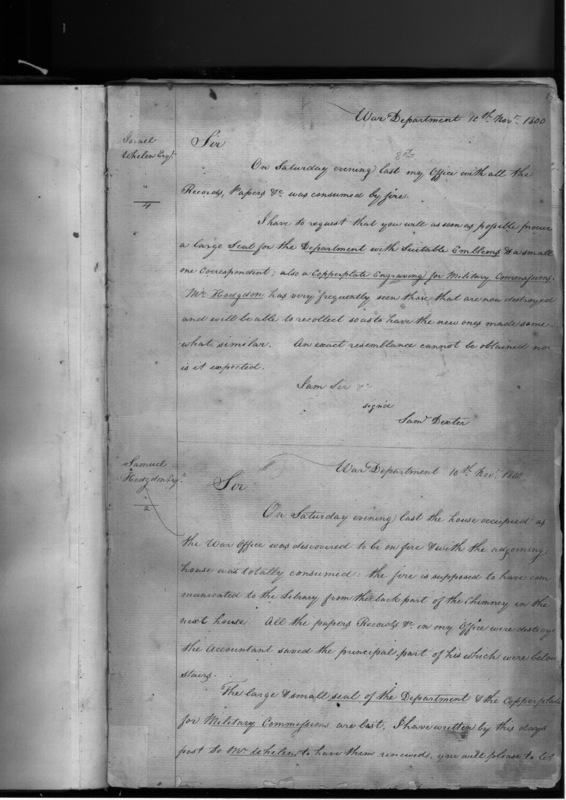 War Department 10th. Novr. 1800
Israel
Whelen Esqr.
"
4
Sir
8th
On Saturday evening last my Office with all the
Records, Papers &c was consumed by fire.
I have to request that you will as soon as possible procure
a large Seal for the Department with Suitable Emblems & a small
one Correspondent; also a Copperplate Engraving for Military Commissions.
Mr. Hodgdon has very frequently seen those that are now destroyed
and will be able to recollect so as to have the new ones made some
what similar. An exact resemblance cannot be obtained nor
is it expected.
I am Sir &c
signed
Saml. Dexter
Samuel
Hodgdon Esqr.
2
War Department 10th. Novr. 1800
Sir
On Saturday evening last the house occupied as
the War Office was discovered to be on fire & with the adjoining
house was totally consumed: the fire is supposed to have com
municated to the Library from the back part of the Chimney in the
next house. All the papers Records &c. in my Office were destroy
the Accountant saved the principal part of his which were below
stairs.
The large & small seal of the Department & the Copperplate
for Military Commissions are lost. I have written by this days
post to Mr Whelen to have them renewed, you will please to let